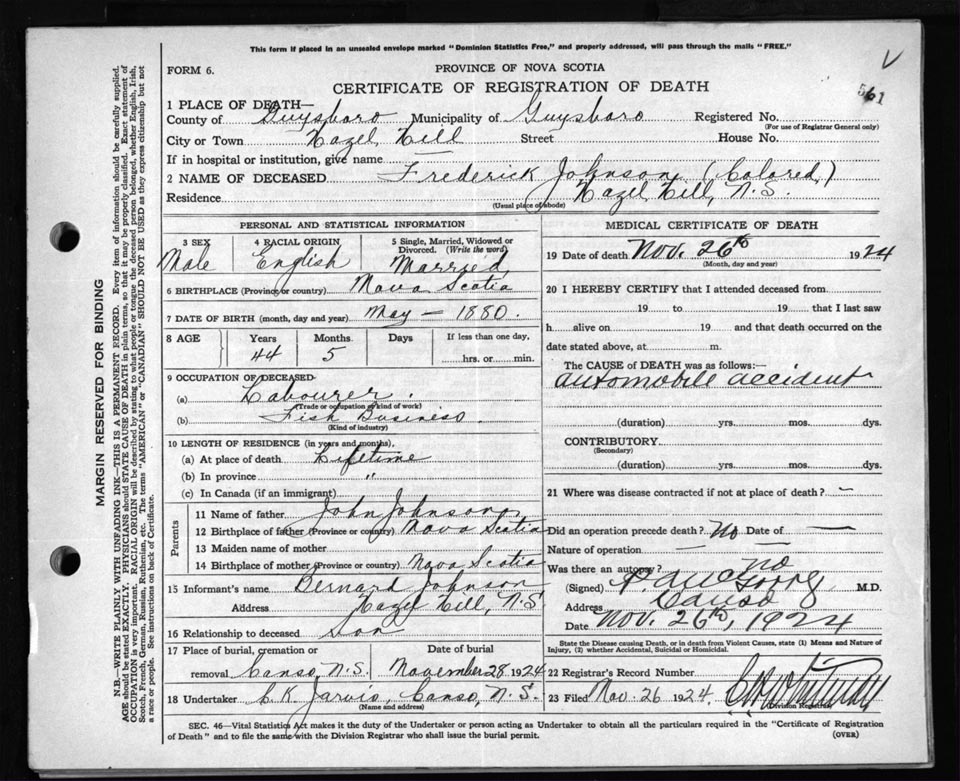 This form if placed in an unsealed envelope marked "Dominion Statistics Free," and properly addressed, will pass through the mails "FREE."
FORM 6.
PROVINCE OF NOVA SCOTIA
CERTIFICATE OF REGISTRATION OF DEATH
561
1 PLACE OF DEATH—
County of Guysboro Municipality of Guysboro Registered No.
(For use of Registrar General only)
City or Town Hazel Hill Street House No.
If in hospital or institution, give name —
2 NAME OF DECEASED Frederick Johnson (Colored)
Residence Hazel Hill, N.S.
(Usual place of abode)
PERSONAL AND STATISTICAL INFORMATION
3 SEX 4 RACIAL ORIGIN 5 Single, Married, Widowed or Divorced. (Write the word)
Male English Married
6 BIRTHPLACE (Province or country) Nova Scotia
7 DATE OF BIRTH (month, day and year) May — 1880.
8 AGE Years Months Days If less than one day,
44 5 hrs. or min.
9 OCCUPATION OF DECEASED
(a) Labourer.
(Trade or occupation or kind of work)
(b) Fish Business
(Kind of industry)
10 LENGTH OF RESIDENCE (in years and months),
(a) At place of death Lifetime
(b) In province "
(c) In Canada (if an immigrant)
Parents
11 Name of father John Johnson
12 Birthplace of father (Province or country) Nova Scotia
13 Maiden name of mother
14 Birthplace of mother (Province or country) Nova Scotia
15 Informant's name Bernard Johnson
Address Hazel Hill, N.S
16 Relationship to deceased Son
17 Place of burial, cremation or Date of burial
removal Canso, N.S. November 28 1924
18 Undertaker C.K. Jarvis, Canso, N.S.
(Name and address)
MEDICAL CERTIFICATE OF DEATH
19 Date of death Nov. 26th 1924
(Month, day and year)
20 I HEREBY CERTIFY that I attended deceased from
19 to 19 that I last saw
h alive on 19 and that death occurred on the
date stated above, at m.
The CAUSE OF DEATH was as follows:—
automobile accident
(duration) yrs. mos. dys.
CONTRIBUTORY
(Secondary)
(duration) yrs. mos. dys.
21 Where was disease contracted if not at place of death? —
Did an operation precede death? No Date of —
Nature of operation —
Was there an autopsy? no
(Signed) M.D.
Address Canso
Nov. 26th, 1924
State the Disease causing Death, or in death from Violent Causes, state (1) Means and Nature of Injury, (2) whether Accidental, Suicidal or Homicidal.
22 Registrar's Record Number
23 Filed Nov. 26 1924.
Division Registrar
SEC. 46—Vital Statistics Act makes it the duty of the Undertaker or person acting as Undertaker to obtain all the particulars required in the "Certificate of Registration
of Death" and to file the same with the Division Registrar who shall issue the burial permit.
(OVER)
MARGIN RESERVED FOR BINDING
N.B.—WRITE PLAINLY WITH UNFADING INK—THIS IS A PERMANENT RECORD. Every item of information should be carefully supplied.
AGE should be stated EXACTLY. PHYSICIANS should STATE CAUSE OF DEATH in plain terms, so that it may be properly classified. Exact statement of
OCCUPATION is very important. RACIAL ORIGIN will be described by stating to what people or tongue the deceased person belonged, whether English, Irish,
Scotch, French, German, Russian, Ruthenian, etc. The terms "AMERICAN" or "CANADIAN" SHOULD NOT BE USED as they express citizenship but not
a race or people. See instructions on back of Certificate.